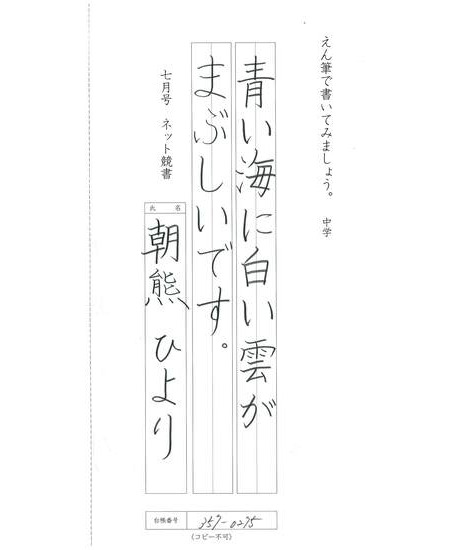 えん筆で書いてみましょう。 中学
青い海に白い雲が
まぶしいです。
七月号 ネット競書
氏 名
朝熊 ひより
台帳番号
357-0275
(コピー不可)